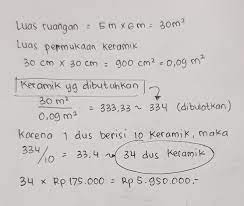 Luas ruangan = 5m x 6m = 30m²
Luas permukaan keramik
30 cm x 30 cm = 900 cm² = 0,09 m²
Keramik yg dibutuhkan
30 m²
0,09 m² = 333,33 ~ 334 (dibulatkan)
Karena 1 dus berisi 10 keramik, maka
334/10 = 33.4 ~ 34 dus keramik
34 x Rp 175.000 = Rp 5.950.000,-